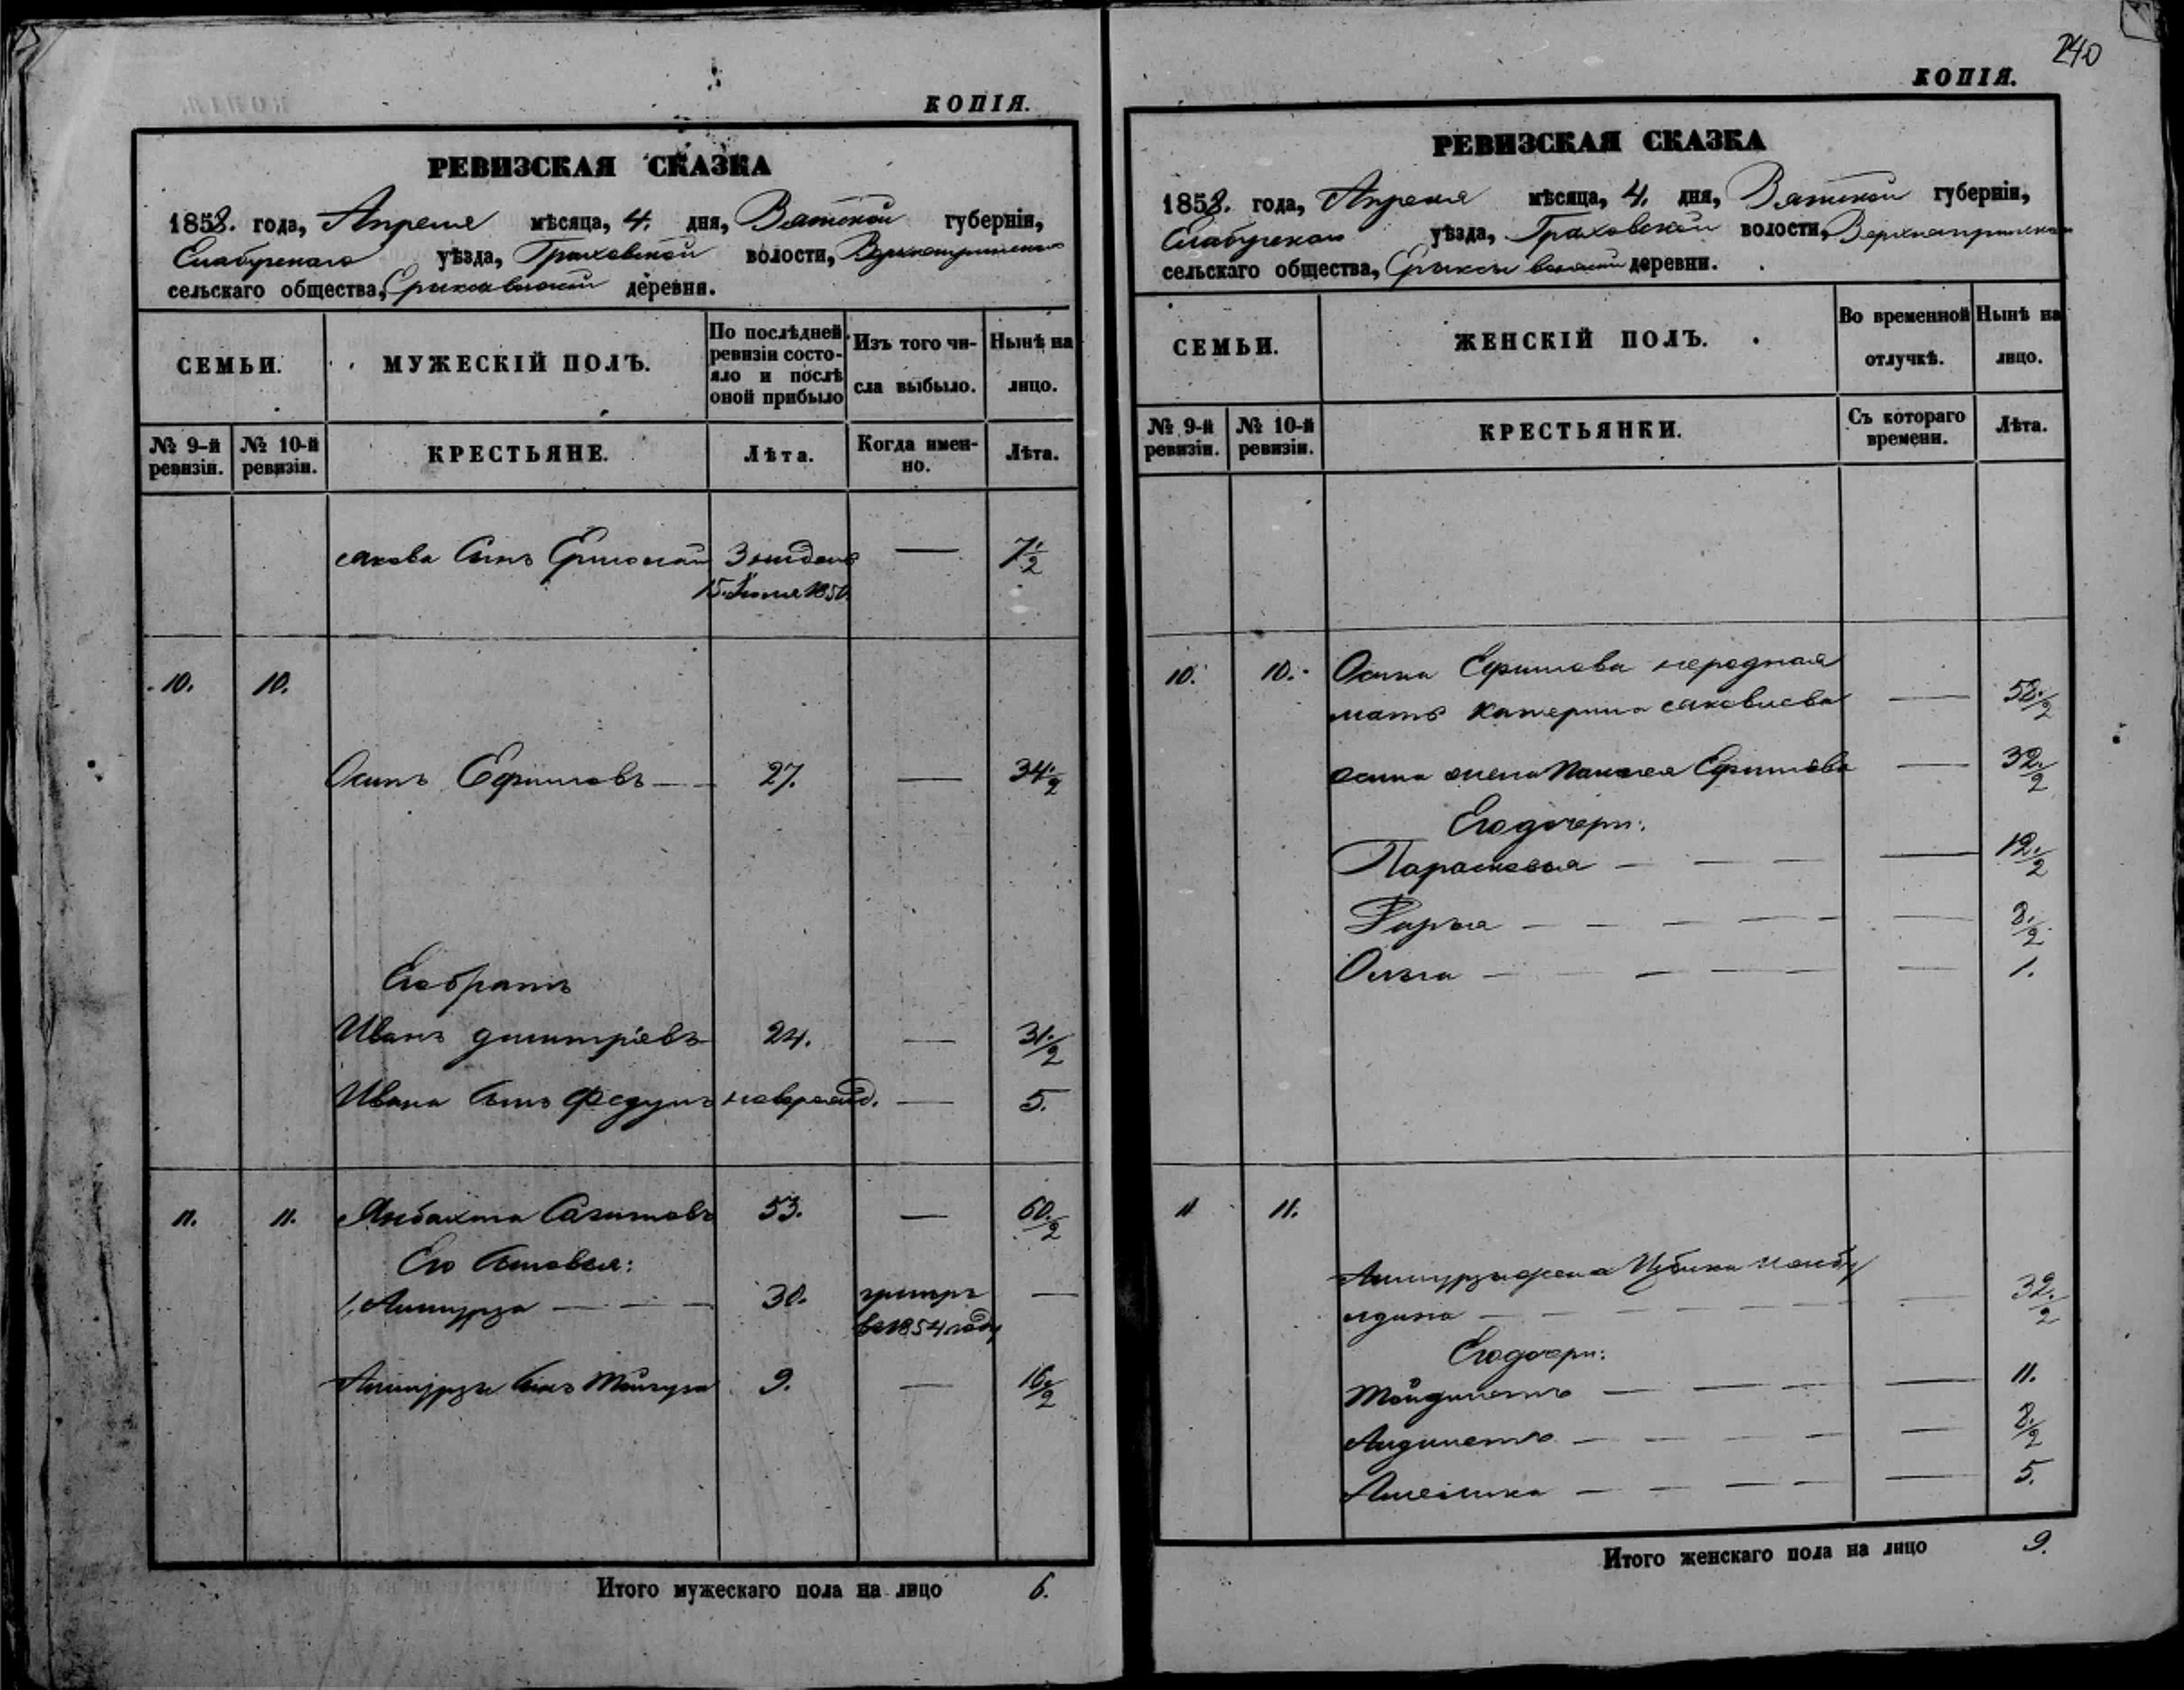 КОПІЯ.
РЕВИЗСКАЯ СКАЗКА
1858. года, Апреля мѣсяца, 4. дня, Вятской губерніи,
Елабугскаго уѣзда, Граховской волости,
сельскаго общества, деревни.
СЕМЬИ.
МУЖЕСКІЙ ПОЛЪ.
По послѣдней ревизіи состояло и послѣ оной прибыло
Изъ того числа выбыло.
Нынѣ на лицо.
№ 9-й ревизіи.
№ 10-й ревизіи.
КРЕСТЬЯНЕ.
Лѣта.
Когда именно.
Лѣта.
сынъ — 7 1/2
15. 1850.
10. 10.
Осипъ Ефимовъ — 27. — 34 1/2
Его братъ
Иванъ Дмитріевъ 24. — 31. 1/2
Ивана сынъ Федулъ новорожд. — 5.
11. 11. Янбахта Сагитовъ 53. — 60. 1/2
Его сыновья:
1, Алмурза — — — 30. умеръ —
въ 1854 году
Алмурзы сынъ 9. — 16. 1/2
Итого мужескаго пола на лицо 6.
240
КОПІЯ.
РЕВИЗСКАЯ СКАЗКА
1858. года, Апреля мѣсяца, 4. дня, Вятской губерніи,
Елабугскаго уѣзда, Граховской волости,
сельскаго общества, деревни.
СЕМЬИ.
ЖЕНСКІЙ ПОЛЪ.
Во временной отлучкѣ.
Нынѣ на лицо.
№ 9-й ревизіи.
№ 10-й ревизіи.
КРЕСТЬЯНКИ.
Съ котораго времени.
Лѣта.
10. 10. Осипа Ефимова неродная
мать Катерина Яковлева — 58. 1/2
Осипа жена Ефимова — 32. 1/2
Его дочери:
Парасковья — — — — 12. 1/2
Дарья — — — — — — 8. 1/2
Ольга — — — — — — 1.
11 11.
Алмурзы жена
— — — — — 32. 1/2
Его дочери:
— — — — 11.
— — — — — 8. 1/2
— — — — — 5.
Итого женскаго пола на лицо 9.